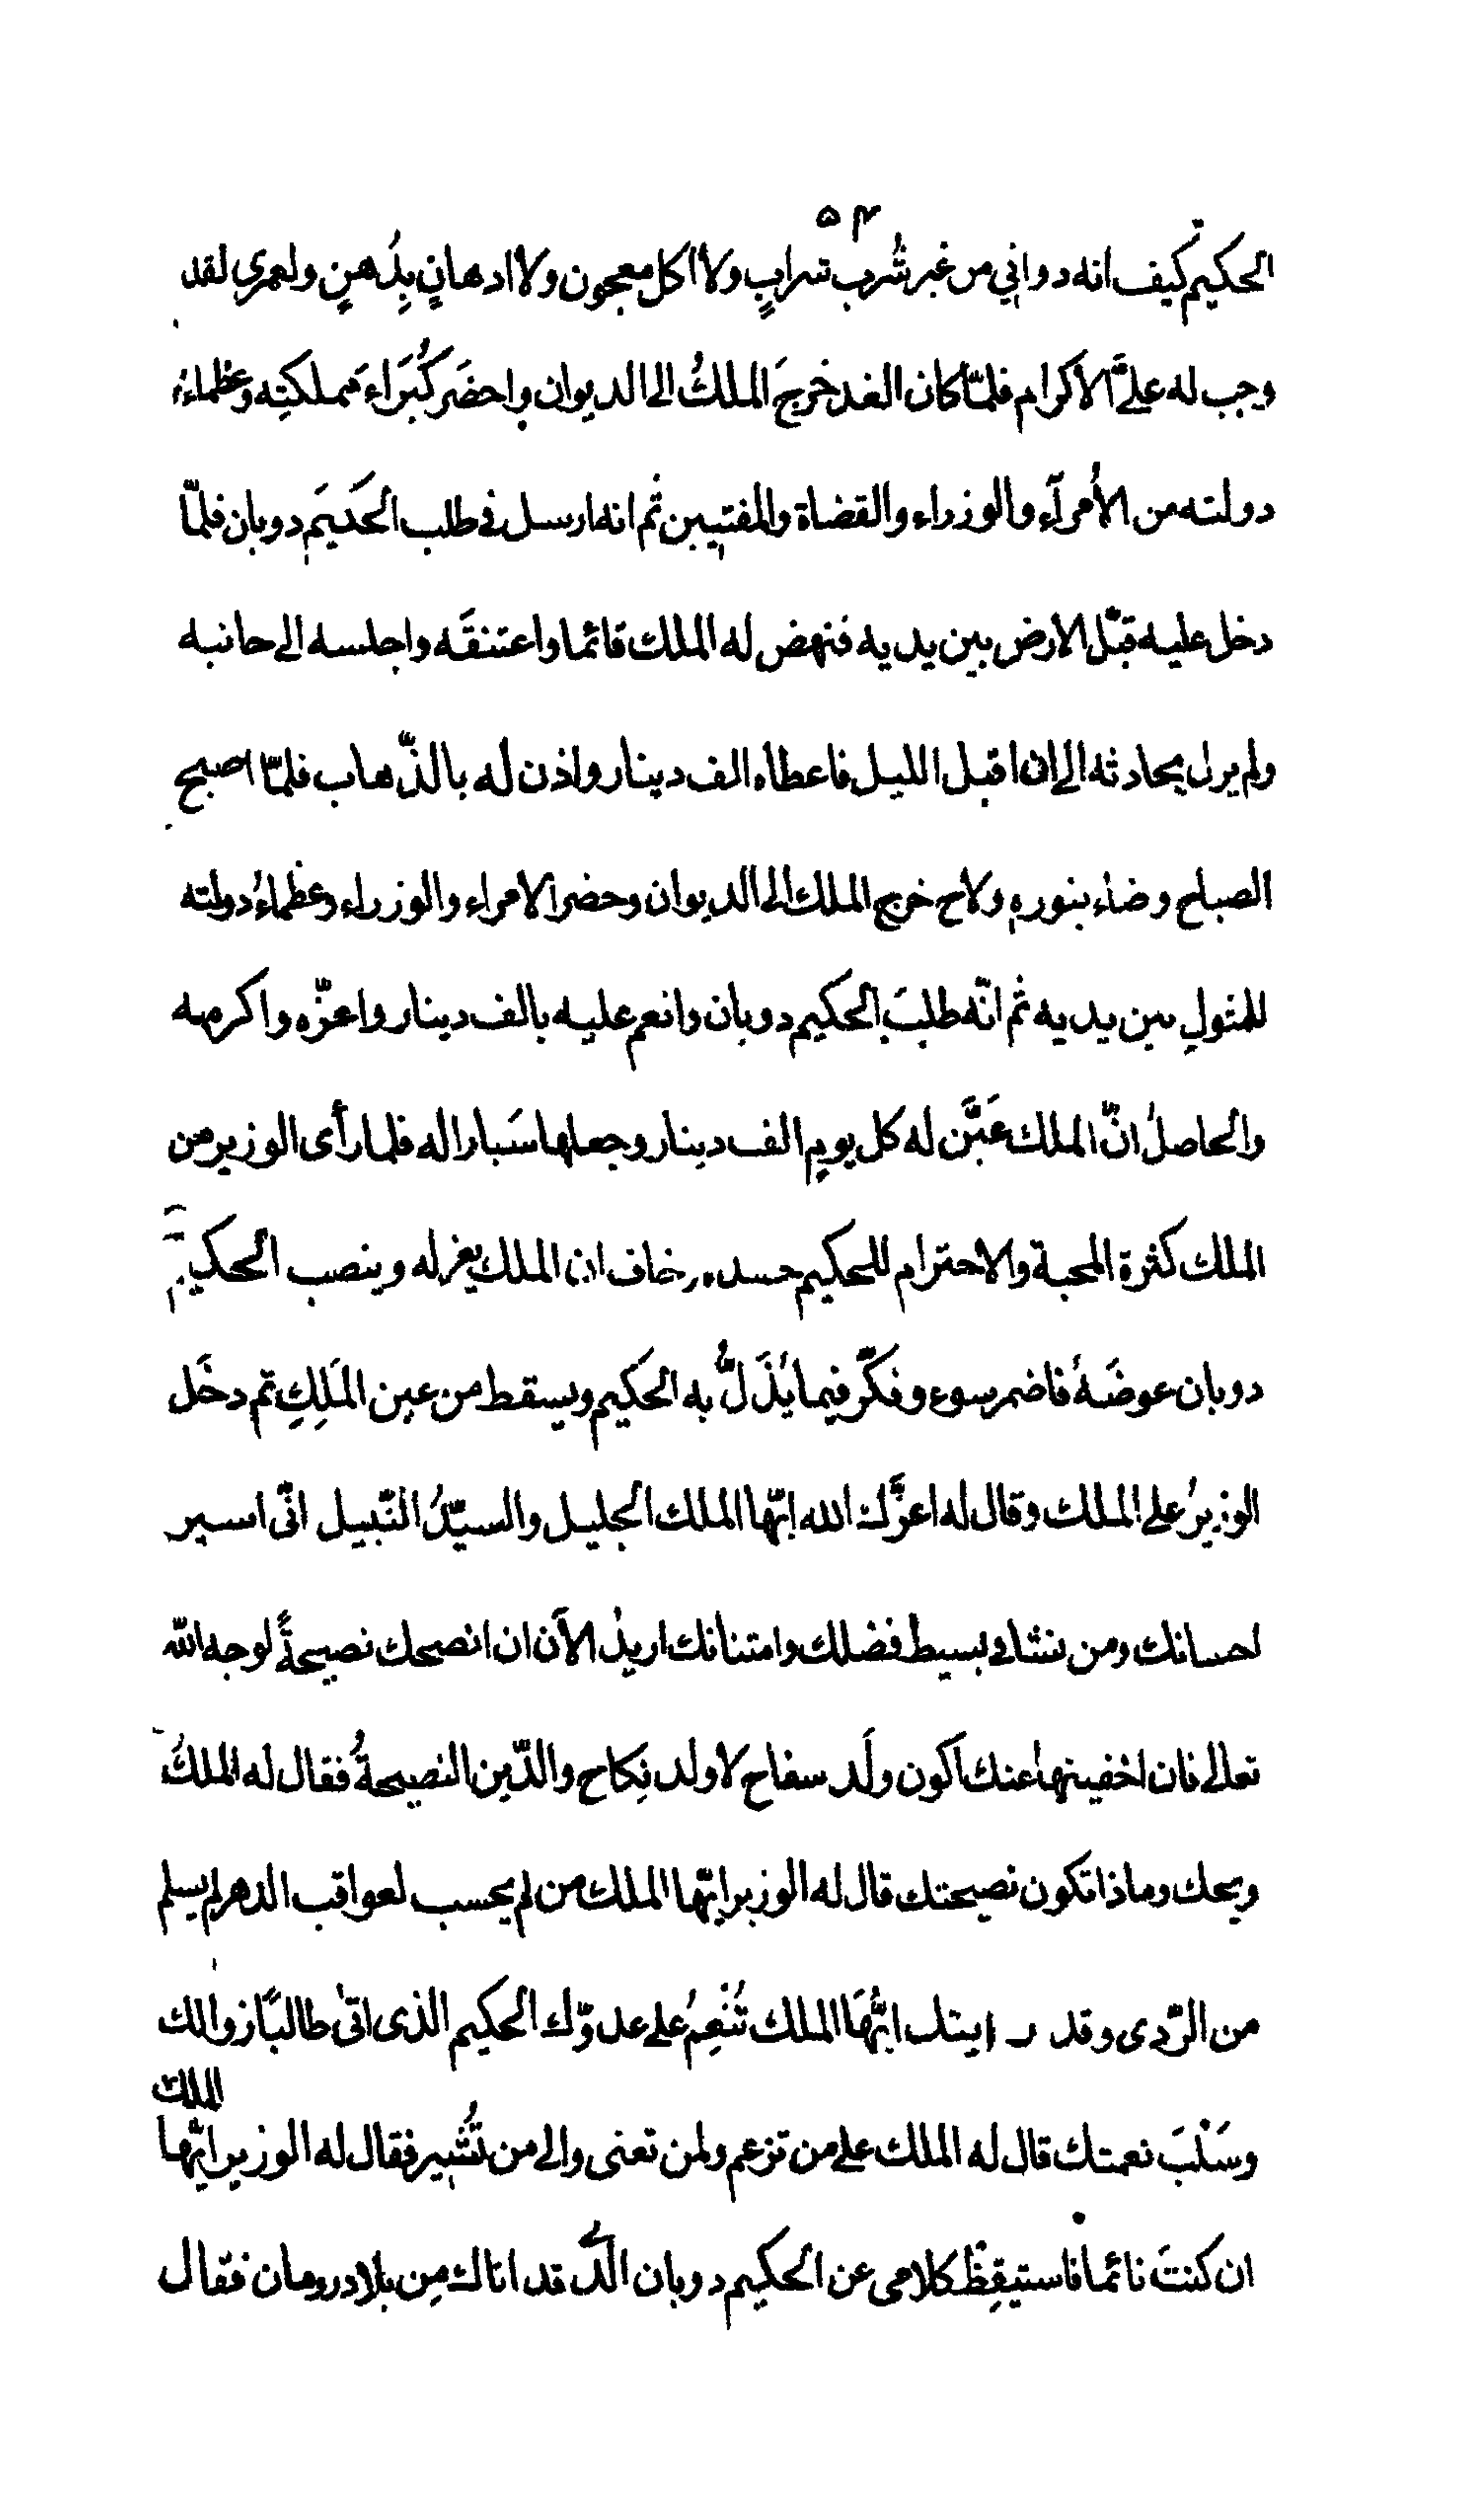 ٥٣
الحكيم كيف انه دوانى من غير شُرب شرابٍ ولا اكل معجون ولا ادهانٍ بِدُهنٍ ولعمرى لقد
وجب له علىَّ الاكرام فلمّا كان الغد خرجَ الملكُ الى الديوان واحضَر كُبَراءَ مملكتِه وعظماءَ
دولته من الأُمرآءِ والوزراء والقضاة والمفتيين ثم انه ارسل فى طلب الحَكيم دوبان فلمّا
دخل عليه قبّل الارض بين يديه فنهض له الملك قائما واعتنقَه واجلسه الى جانبه
ولم يزل يحادثه الى ان اقبل الليل فاعطاه الف دينار واذن له بالذّهاب فلمّا اصبح
الصباح وضاء بنوره ولاح خرج الملك الى الديوان وحضر الامراء والوزراء وعظماءُ دولته
للمثولِ بين يديه ثم انّه طلبَ الحكيم دوبان وانعم عليه بالف دينار واعزّه واكرمه
والحاصلُ انّ الملك عَيَّن له كل يومٍ الف دينار وجعلها سَبارا له فلما رأى الوزير من
الملك كثرة المحبة والاحترام للحكيم حسده وخاف ان الملك يعزله وينصب الحكيم
دوبان عوضَهُ فاضمر سوء وفكّر فيما يُذَلُّ به الحكيم ويسقط من عين المَلِكِ ثم دخَل
الوزيرُ على الملك وقال له اعزَّك الله ايّها الملك الجليل والسيّدُ النّبيل انّى اسير
احسانك ومن نشا فى بسيط فضلك وامتنانك اريدُ الآن ان انصحك نصيحةً لوجه الله
تعالى فان اخفيتها عنك اكون ولَد سفاح لا ولد نِكاح والدّين النصيحةُ فقال له الملكُ
ويحك وماذا تكون نصيحتك قال له الوزير ايّها الملك من لم يحسب لعواقب الدهر لم يسلم
من الرّدى وقد رايتك ايُّهَا الملك تُنْعِمُ على عدوّك الحكيم الذى اتىٰ طالبًا زوالك
وسَلْبَ نعمتك قال له الملك على من تزعم ولمن تعنى والى من تُشير فقال له الوزير ايّها الملك
ان كنتَ نائما فاستيقِظْ كلامى عن الحكيم دوبان الّذى قد اتاك مِن بلاد رومان فقال